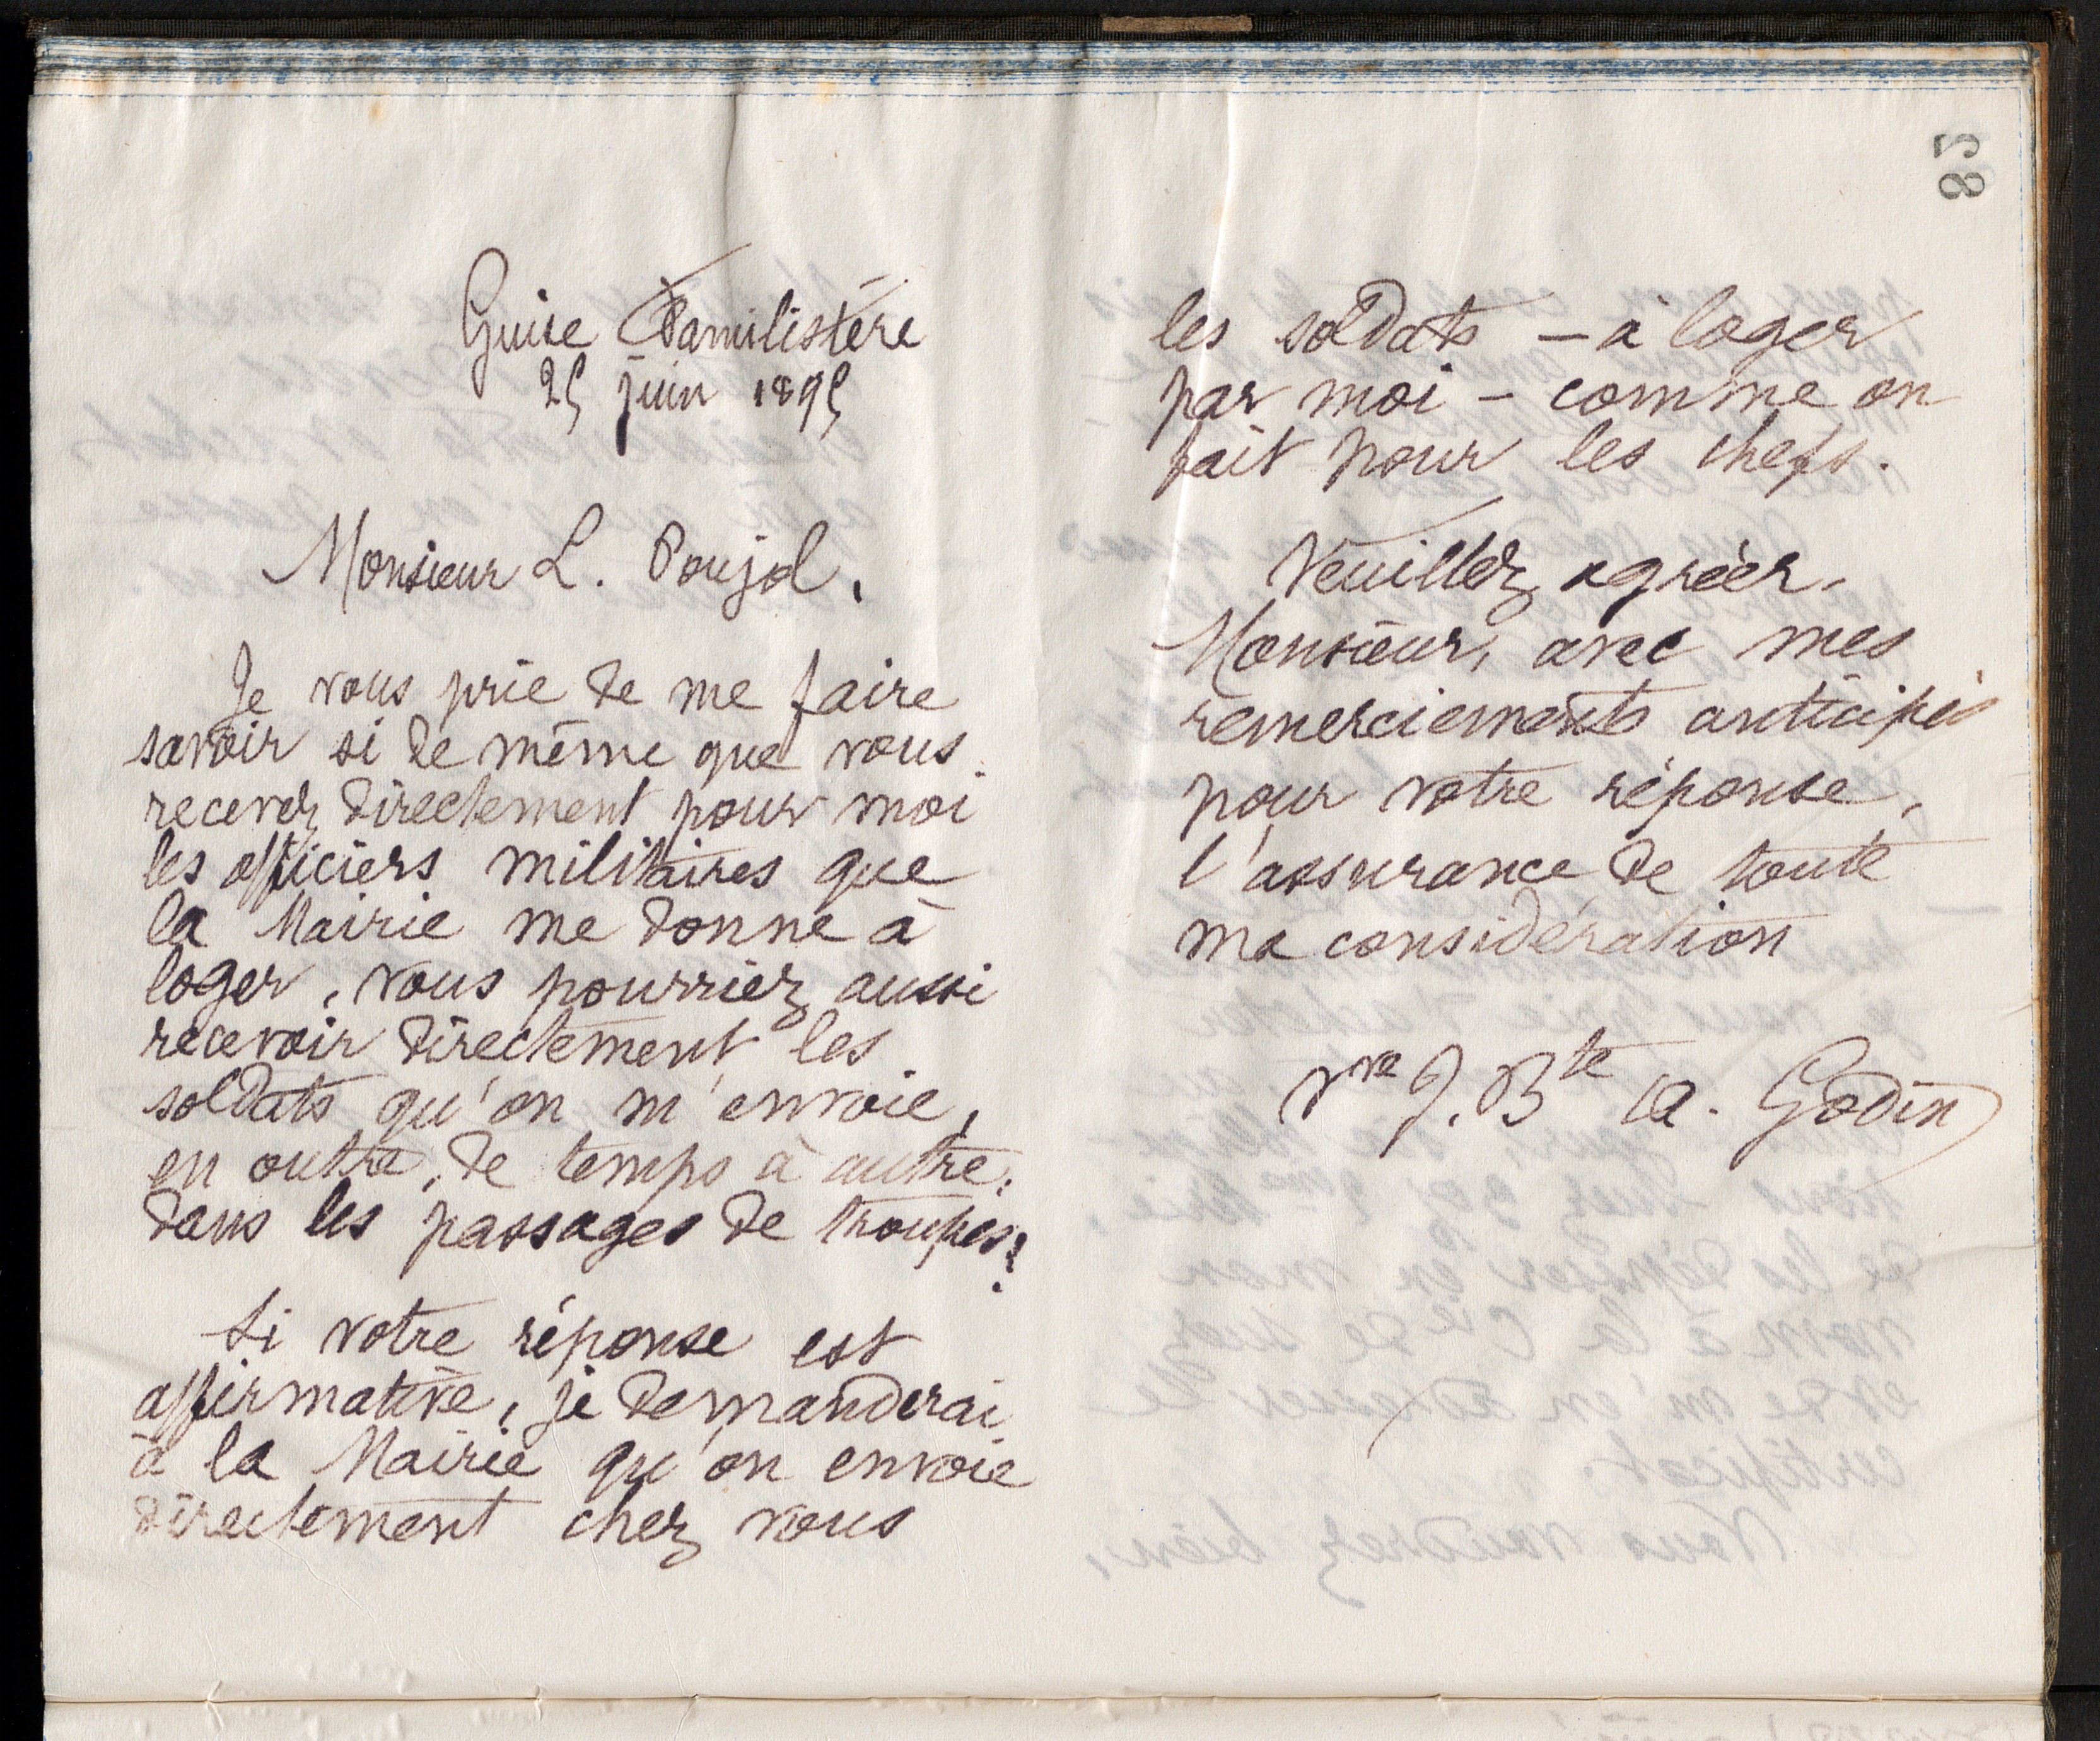 Guise Familistère
25 juin 1895
Monsieur L. Poujol,
Je vous prie de me faire
savoir si de même que vous
recevez directement pour moi
les officiers militaires que
la Mairie me donne à
loger, vous pourriez aussi
recevoir directement les
soldats qu'on m'envoie,
en outre, de temps à autre,
dans les passages de troupes?
Si votre réponse est
affirmative, je demanderai
à la Mairie qu'on envoie
directement chez vous
85
les soldats – à loger
par moi – comme on
fait pour les chefs.
Veuillez agréer,
Monsieur, avec mes
remerciements anticipés
pour votre réponse,
l'assurance de toute
ma considération
Vve J. Bte A. Godin